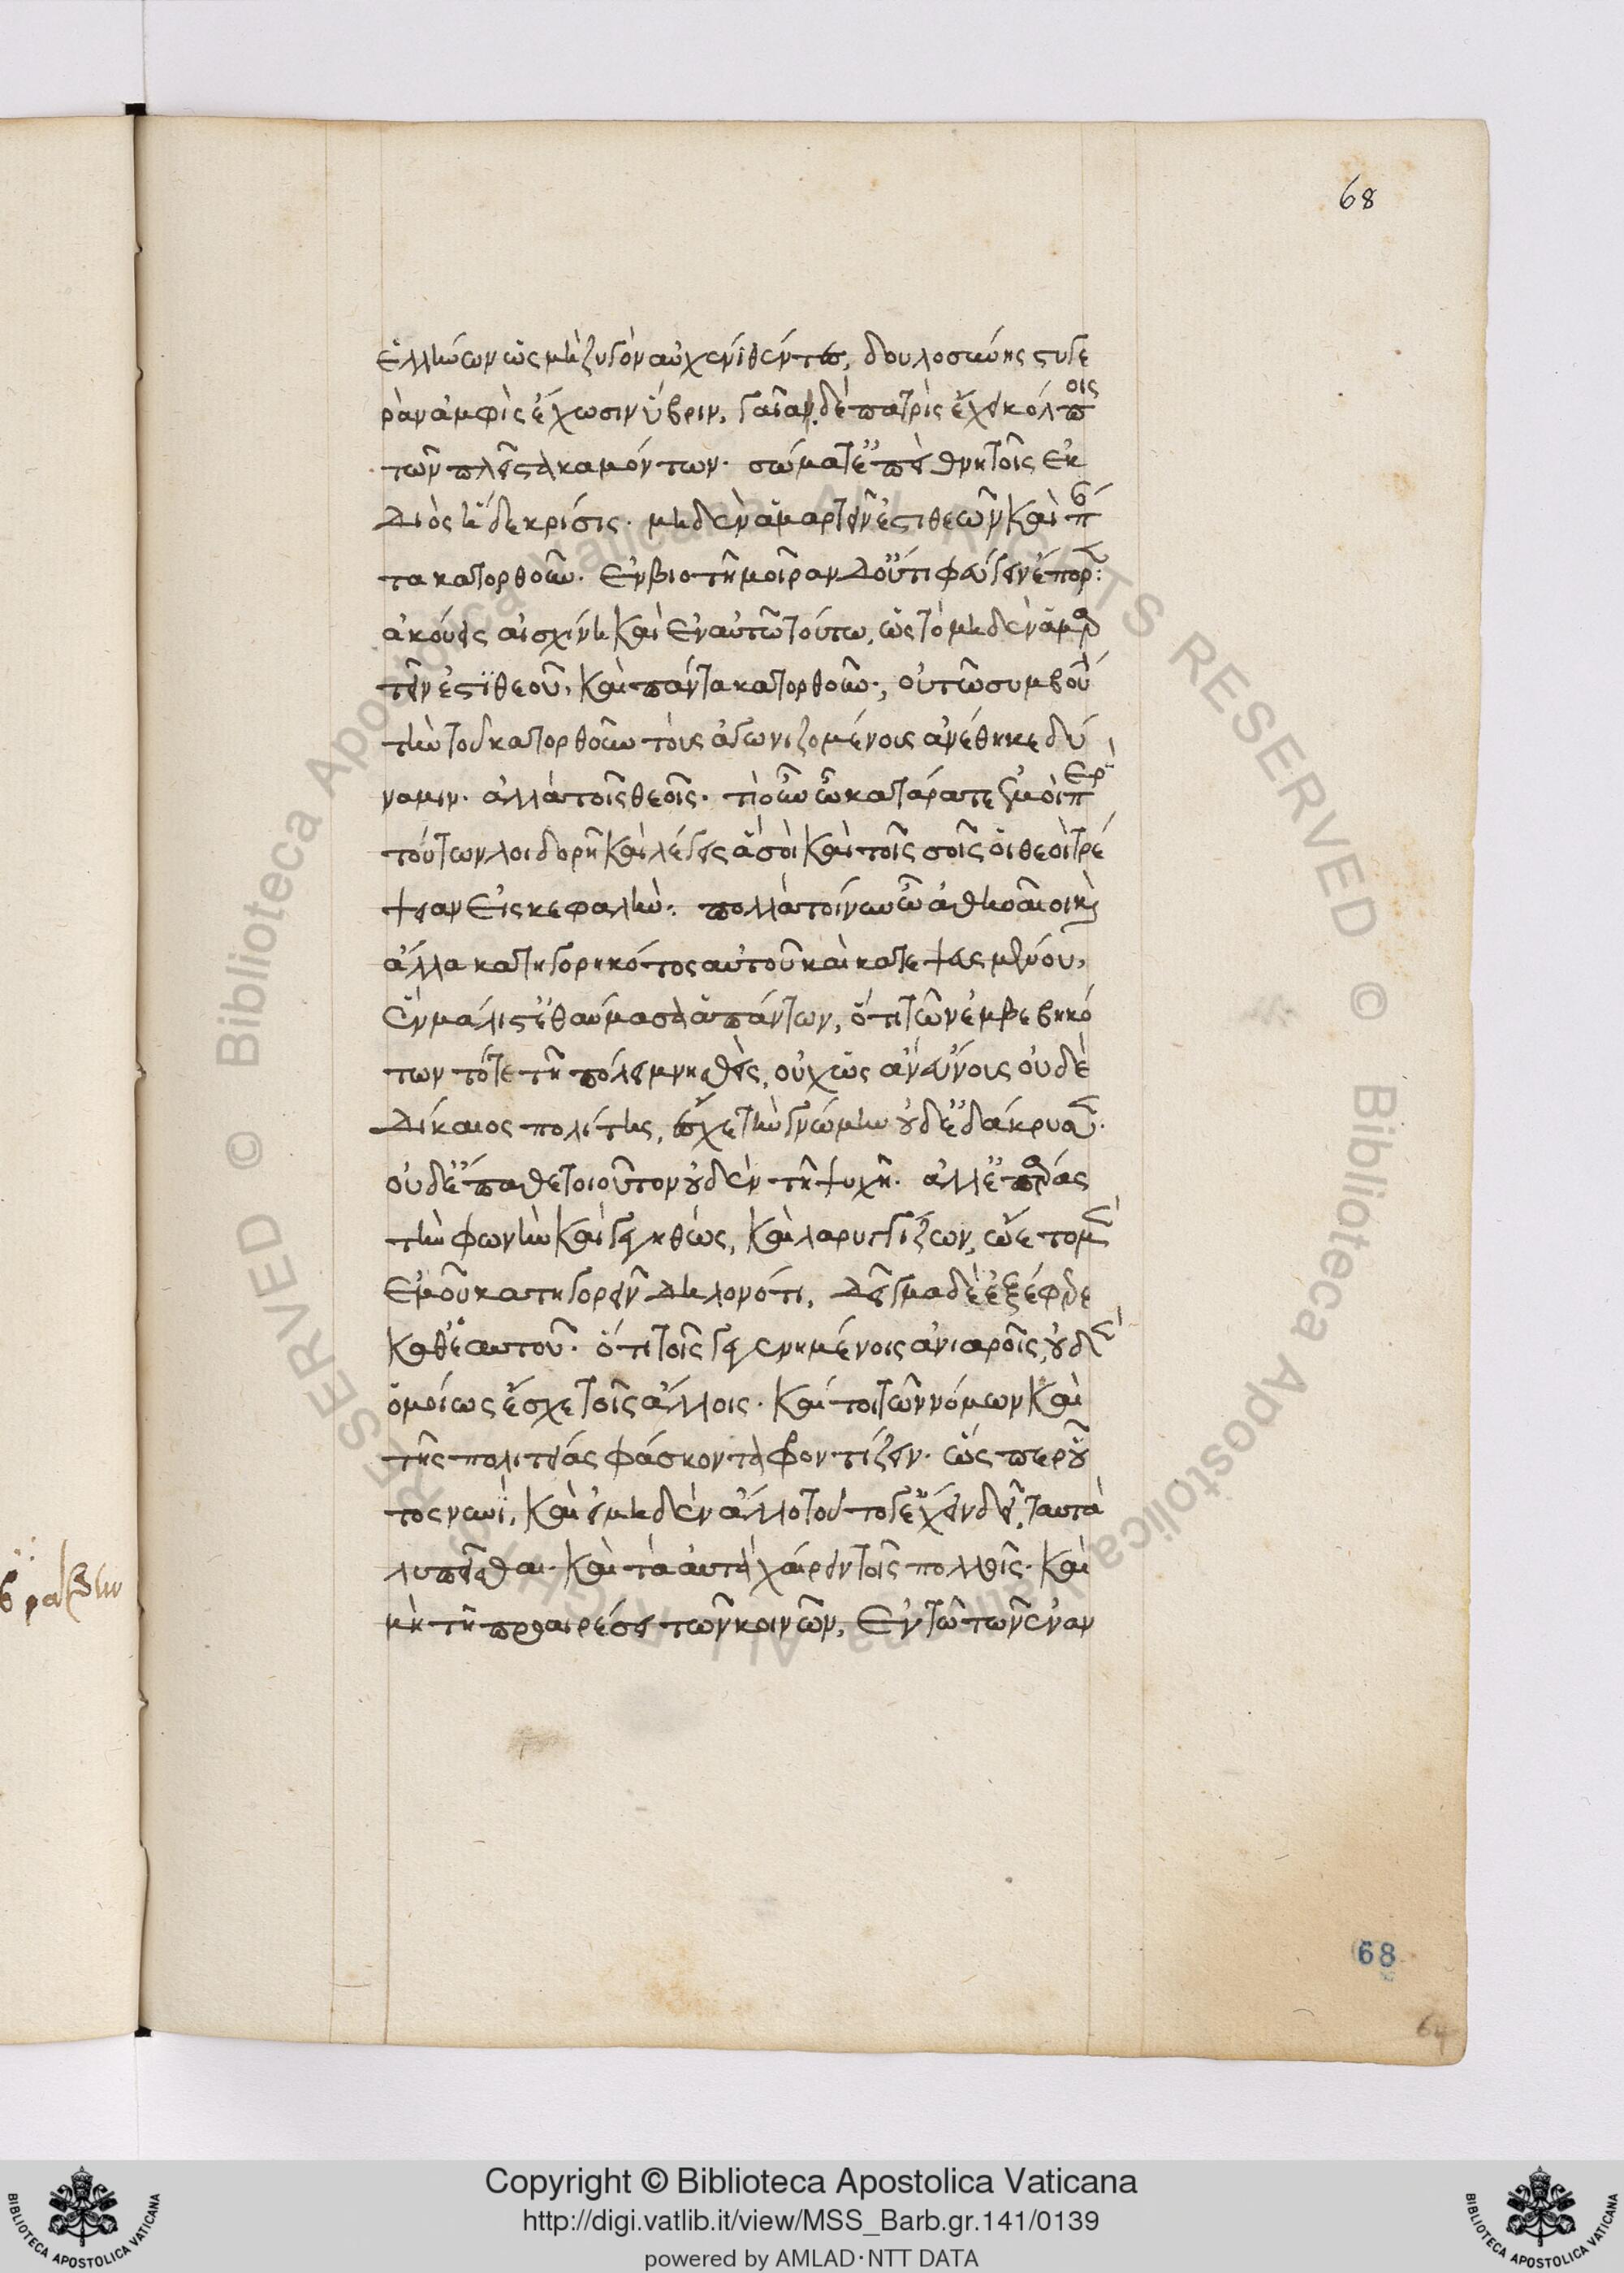 68
ἑλλήνων ὡς μὴ ζυγὸν αὐχένι θέντες, δουλοσύνης στυγε
ρὰν ἀμφὶς ἔχωσιν ὕβριν, γαῖαν δὲ πατρὶς ἔχει κόλποις
τῶν πλεῖστα καμόντων. σώματ' ἐπεὶ θνητοῖς ἐκ
Διὸς ἥδε κρίσις. μηδὲν ἁμαρτεῖν ἐστι θεῶν καὶ πάν
τα κατορθοῦν. ἐν βιοτῇ μοῖραν δ' οὔτι φυγεῖν ἔπορεν:
ἀκούεις αἰσχίνη καὶ ἐν αὐτῶ τούτω, ὡς τὸ μηδὲν ἁμαρ
τεῖν ἐστϊ θεοῦ, καὶ πάντα κατορθοῦν., οὐ τῶ συμβού
τὴν τοῦ κατορθοῦν τοὺς ἀγωνιζομένοις ἀνέθηκε δύ
ναμιν. ἀλλὰ τοῖς θεοῖς. τὶ οὖν ὦ κατάρατε ἐμοὶ περὶ
τούτων λοιδορῆ καὶ λέγεις ἃ σοὶ καὶ τοῖς σοῖς οἱ θεοὶ τρέ
ψειαν εἰς κεφαλήν: πολλὰ τοίνυν ὦ ἀθηναῖοι καὶ
ἄλλα κατηγορηκότος αὐτοῦ καὶ κατεψευσμένου,
ἓν μάλιστ' ἐθαύμασα ἁπάντων, ὅτι τῶν ἐμβεβηκό
των τότε τῆ πόλει μνησθεὶς, οὐχ ὡς ἂν εὔνοις οὐδὲ
Δίκαιος πολίτης, ἔσχε τὴν γνώμην οὐδ' ἐδάκρυσεν.
οὐδ' ἔπαθε τοιοῦτον οὐδὲν τῆ ψυχῆ. ἀλλ' ἐπάρας
τὴν φωνὴν καὶ γεγηθὼς, καὶ λαρυγγίζων, ὤετο μὲν
ἐμοῦ κατηγορεῖν δηλονότι, δεῖγμα δὲ ἐξέφερε
καθ' ἑαυτοῦ. ὅτι τοῖς γεγενημένοις ἀνιαροῖς, οὐδὲν
ὁμοίως ἔσχε τοῖς ἄλλοις. καί τοι τῶν νόμων καὶ
τῆς πολιτείας φάσκοντα φροντίζειν. ὥσπερ οὗ
τος νυνῒ, καὶ εἰ μηδὲν ἄλλο τοῦτό γε ἔχειν δεῖ, ταυτὰ
λυπεῖσθαι. καὶ τὰ αὐτὰ χαίρειν τοῖς πολλοῖς. καὶ
μὴ τῆ προαιρέσει τῶν κοινῶν, ἐν τῶ τῶν ἐναν
68
Copyright © Biblioteca Apostolica Vaticana
http://digi.vatlib.it/view/MSS_Barb.gr.141/0139
powered by AMLAD·NTT DATA